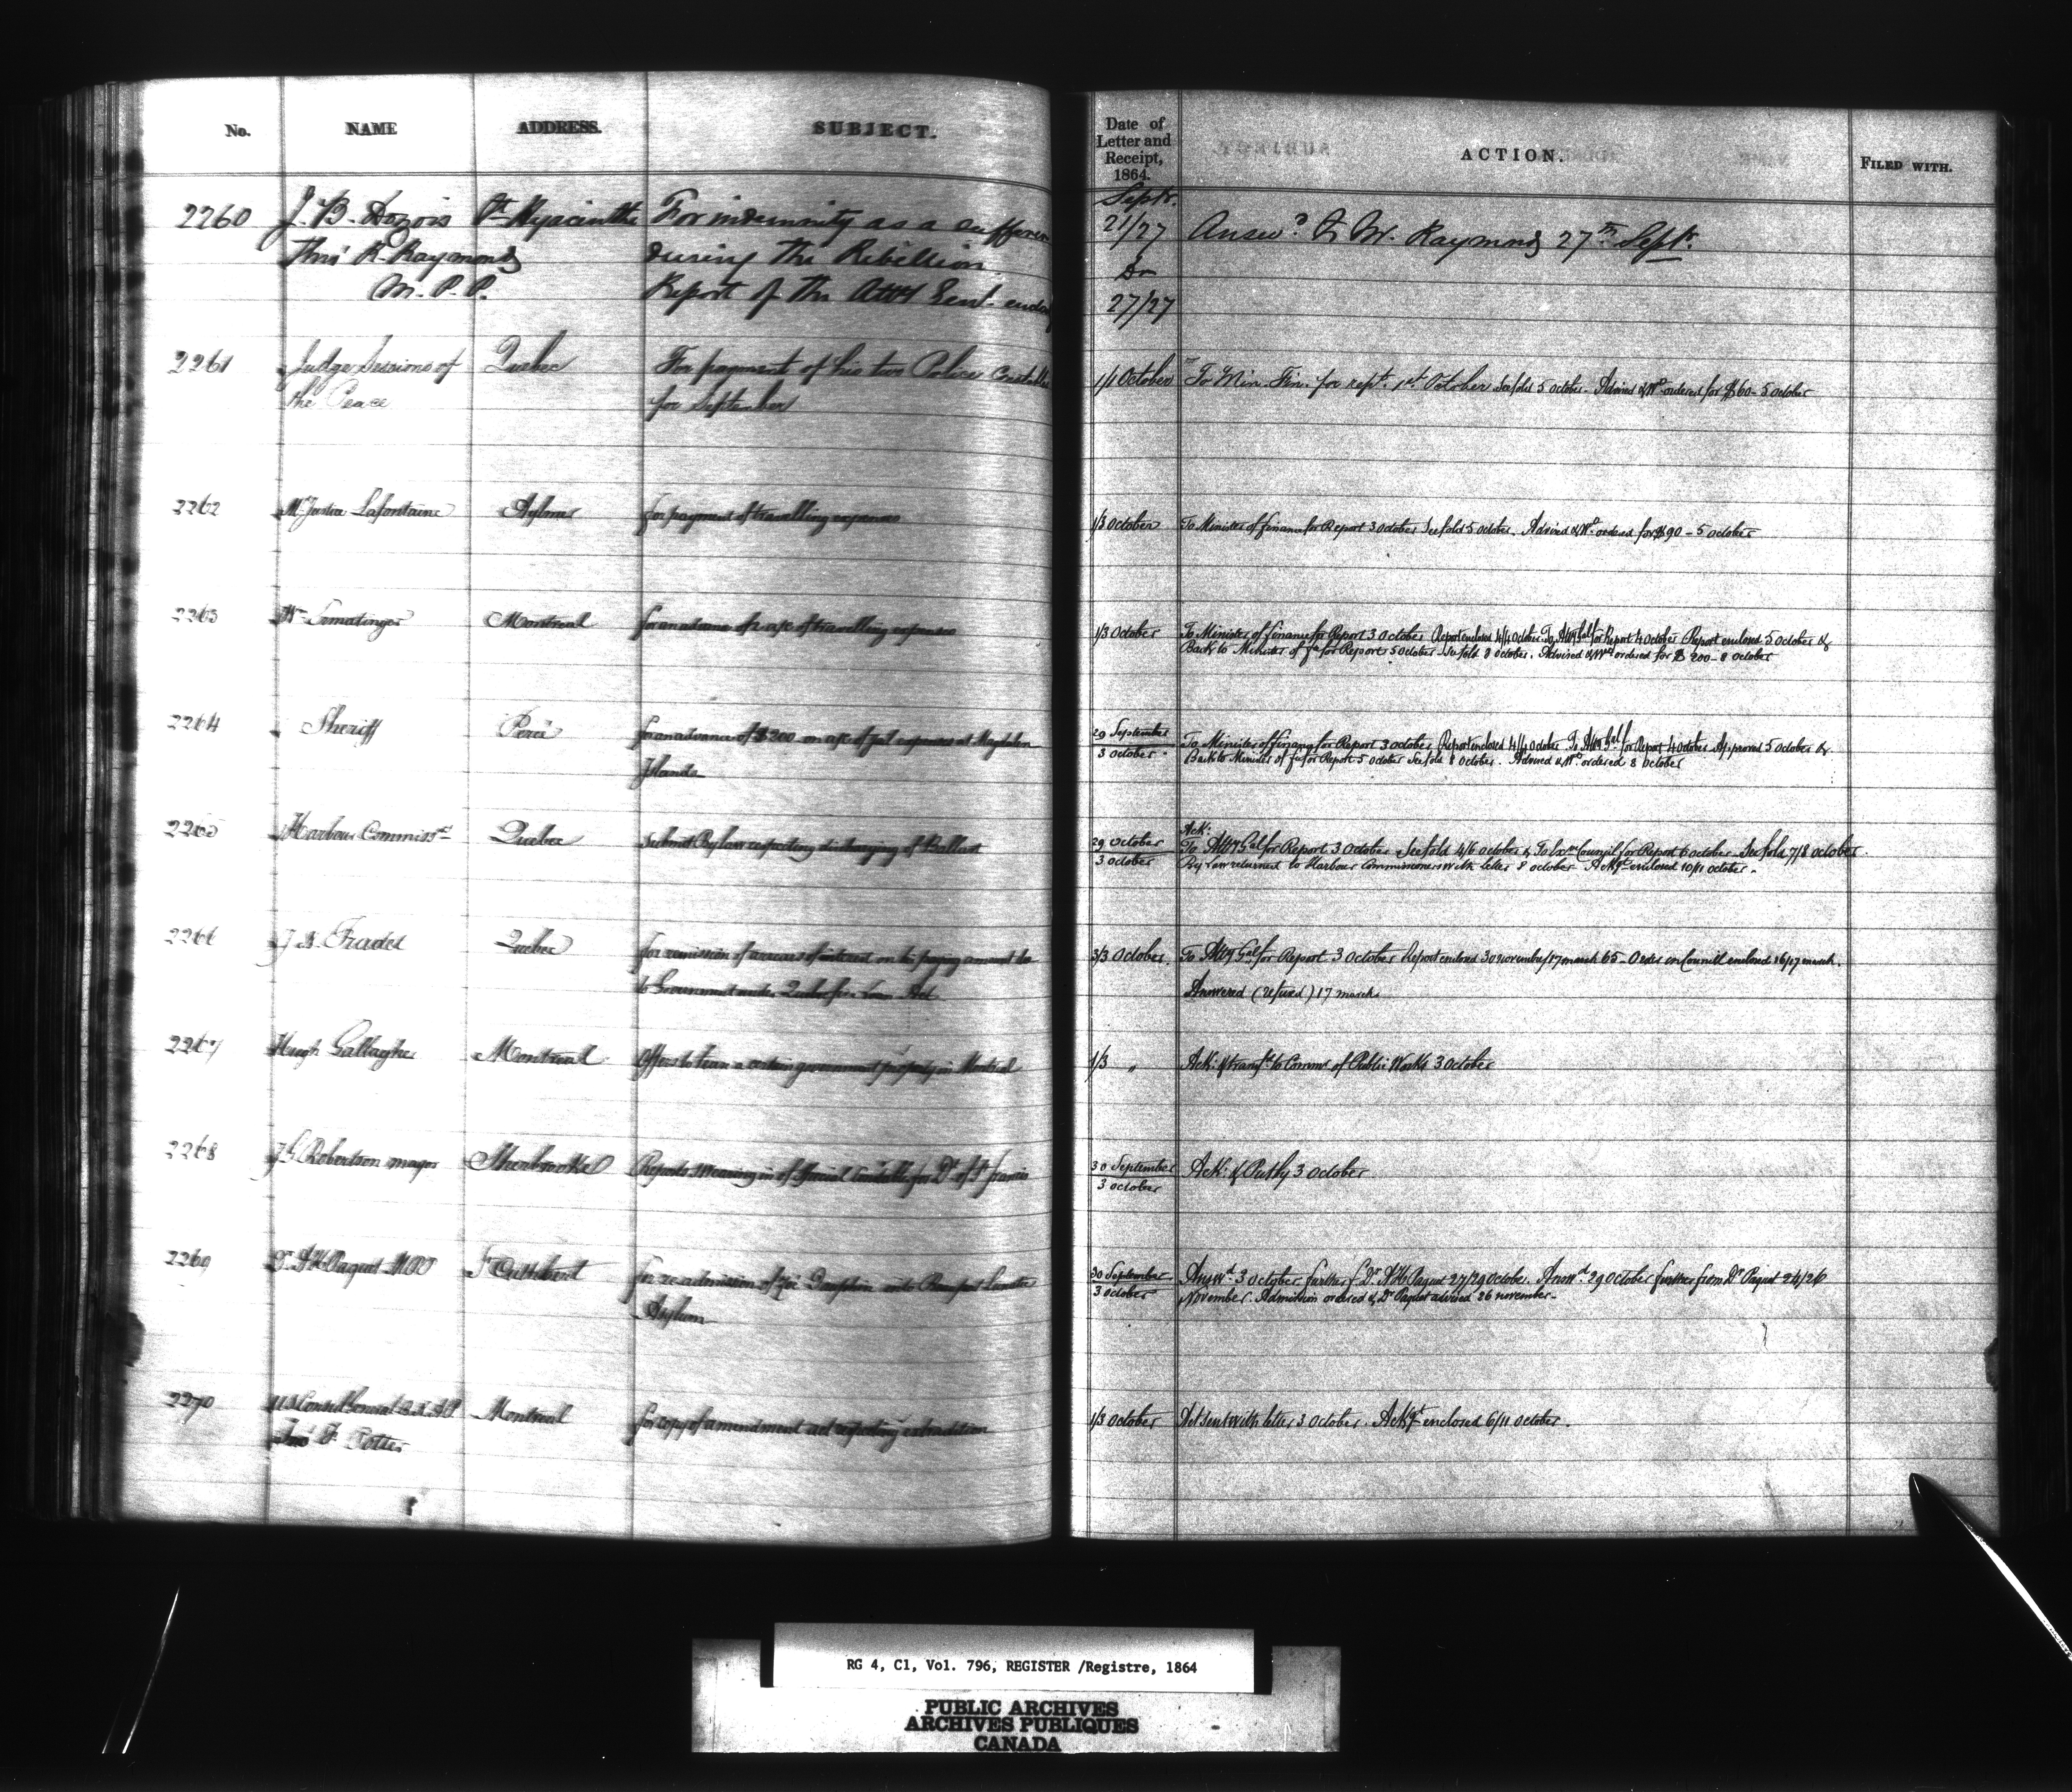 No. NAME ADDRESS. SUBJECT. Date of Letter and Receipt, 1864. ACTION. FILED WITH.
Sept.
2260 J. B. Dozois St Hyacinthe For indemnity as a sufferer 21/27 Answd to Mr. Raymond 27th Sept.
Thro' R. Raymond during the Rebellion. Do
M.P.P. Report of the Atty Genl. 27/27
2261 Judge Sessions of Quebec For payment of his two Police Constables 1/1 October To Min. Fin. for rept. 1st October See fold 5 October. Advised & Wt ordered for $60 - 5 October
the Peace for September
2262 Mr Justice Lafontaine Aylmer for payment of travelling expenses 1/3 October To Minister of finance for Report 3 October See fold 5 October. Advised & Wt ordered for $90 - 5 October
2263 Wm Ermatinger Montreal for an advance of a/c of travelling expenses 1/3 October To Minister of finance for Report 3 October Report enclosed 4/4 October To Atty Gal for Report 4 October Report enclosed 5 October &
Back to Minister of fce for Report 5 October See fold 8 October. Advised & Wt ordered for $200 - 8 October
2264 Sheriff Percé for an advance of $200 on a/c of gaol expenses at Magdalen 29 September To Minister of finance for Report 3 October Report enclosed 4/4 October To Atty Gal for Report 4 October Approved 5 October &
Islands 3 October Back to Minister of fce for Report 5 October See fold 8 October. Advised & Wt ordered 8 October
2265 Harbour Commissrs Quebec Submit By law respecting discharging of Ballast 29 October Ack:
To Atty Gal for Report 3 October See fold 4/6 October & To Exve Council for Report 6 October See fold 7/8 October.
3 October By Law returned to Harbour Commissioners with letter 8 October Ackgt enclosed 10/11 October.
2266 J B Fradet Quebec for remission of arrears of interest on his paying amount 3/3 October. To Atty Gal for Report 3 October Report enclosed 30 november/17 march 65 - Order in Council enclosed 16/17 march.
to Government under Quebec fire Loan Act Answered (refused) 17 march.
2267 Hugh Gallagher Montreal Offers to lease a certain government property in Montreal 1/3 " Ack: & transfd to Commr of Public Works 3 October
2268 J G Robertson mayor Sherbrooke Reports swearing in of Special Constables for Dt of St francis 30 September Ack: 3 October
3 October
2269 Dr A H Paquet MPP St Cuthbert for re-admission of into Beauport Lunatic 30 September Answd. 3 October further f Dr A H Paquet 27/29 October. Answd. 29 October further from Dr Paquet 24/26
Asylum 3 October November. Admission ordered & Dr Paquet advised 26 november.
2270 U S Consul General B.N.A.P. Montreal for copy of amendment act respecting extradition 1/3 October Act sent with letter 3 October. Ackgt enclosed 6/11 October.
Jno F Potter
RG 4, C1, Vol. 796, REGISTER /Registre, 1864
PUBLIC ARCHIVES
ARCHIVES PUBLIQUES
CANADA